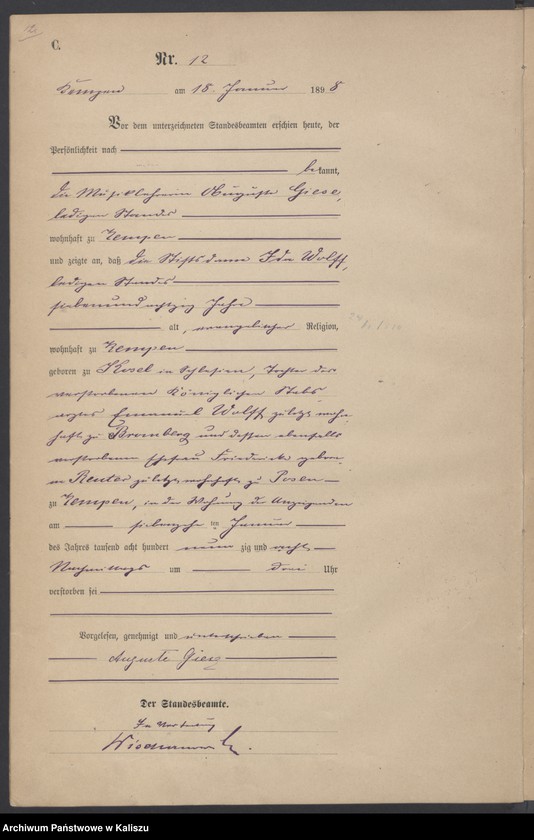 C.
Nr. 12
Kempen am 18. Januar 1898
Vor dem unterzeichneten Standesbeamten erschien heute, der
Persönlichkeit nach
bekannt,
die Musiklehrerin Auguste Giese,
ledigen Standes
wohnhaft zu Kempen
und zeigte an, daß die Stiftsdame Ida Wolff,
ledigen Standes
siebenundachtzig Jahre
alt, evangelischer Religion,
wohnhaft zu Kempen
geboren zu Kosel in Schlesien, Tochter des
verstorbenen Königlichen Stabs
arztes Emanuel Wolff zuletzt wohn
haft zu Bromberg und dessen ebenfalls
verstorbenen Ehefrau Friederike gebore
ne Reuter zuletzt wohnhaft zu Posen
zu Kempen, in der Wohnung der Anzeigenden
am siebenzehnten Januar
des Jahres tausend acht hundert neunzig und acht
Nachmittags um drei Uhr
verstorben sei
Vorgelesen, genehmigt und unterschrieben
Auguste Giese
Der Standesbeamte.
In Vertretung
Archiwum Państwowe w Kaliszu